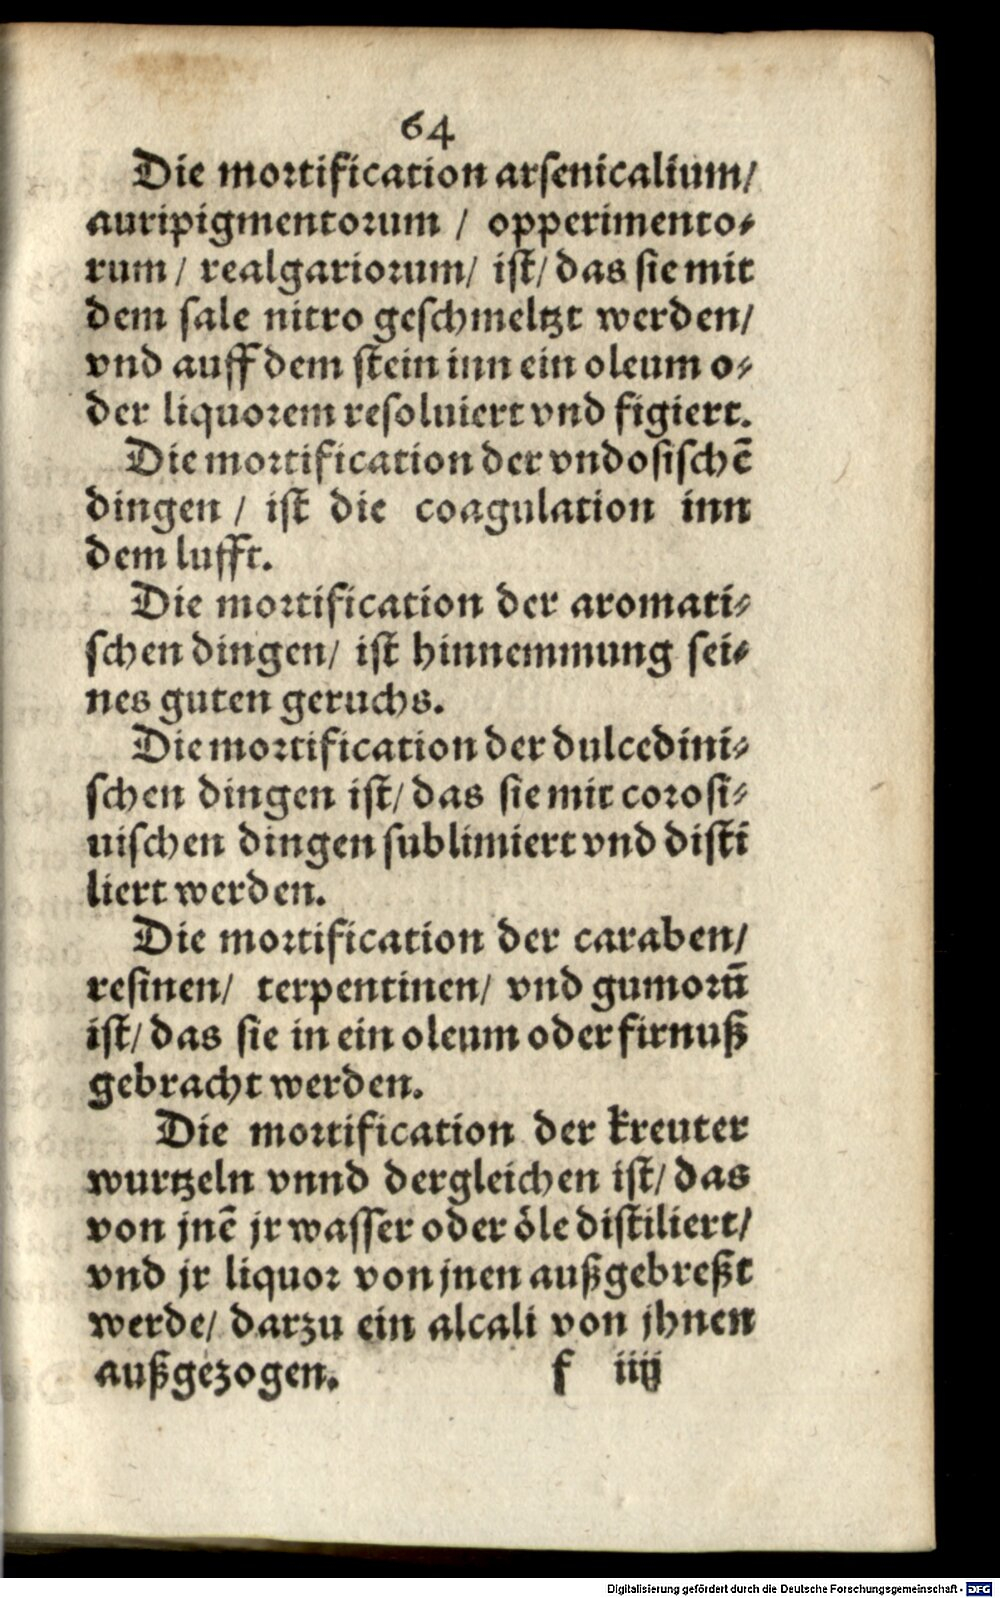 64
Die mortification arsenicalium/
auripigmentorum / opperimento⸗
rum / realgariorum/ ist/ das sie mit
dem sale nitro geschmeltzt werden/
vnd auff dem stein inn ein oleum o⸗
der liquorem resoluiert vnd figiert.
Die mortification der vndosischē
dingen / ist die coagulation inn
dem lufft.
Die mortification der aromati⸗
schen dingen/ ist hinnemmung sei⸗
nes guten geruchs.
Die mortification der dulcedini⸗
schen dingen ist/ das sie mit corosi⸗
uischen dingen sublimiert vnd disti
liert werden.
Die mortification der caraben/
resinen/ terpentinen/ vnd gumorū
ist/ das sie in ein oleum oder firnuß
gebracht werden.
Die mortification der kreuter
wurtzeln vnnd dergleichen ist/ das
von jnē jr wasser oder öle distiliert/
vnd jr liquor von jnen außgebreßt
werde/ darzu ein alcali von jhnen
außgezogen.
f iiij
Digitalisierung gefördert durch die Deutsche Forschungsgemeinschaft - DFG